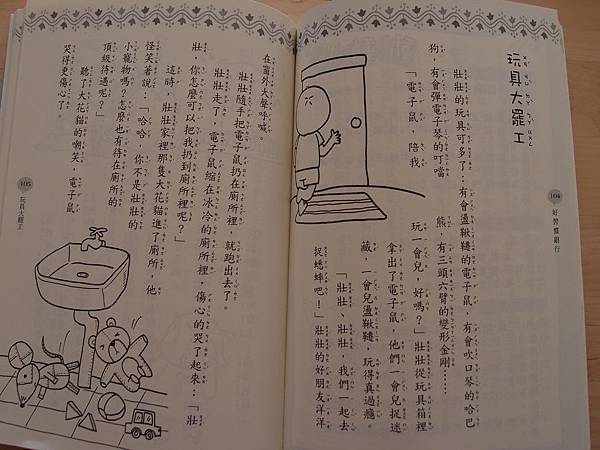 玩具大罷工
壯壯的玩具可多了:有會盪鞦韆的電子鼠,有會吹口琴的哈巴
狗,有會彈電子琴的叮噹熊,有三頭六臂的變形金剛……
「電子鼠,陪我玩一會兒,好嗎?」壯壯從玩具箱裡
拿出了電子鼠,他們一會兒捉迷
藏,一會兒盪鞦韆,玩得真過癮。
「壯壯、壯壯,我們一起去
捉蟋蟀吧!」壯壯的好朋友洋洋
104
好習慣銀行
在窗外大聲呼喊。
壯壯隨手把電子鼠扔在廁所裡,就跑出去了。
壯壯走了,電子鼠縮在冰冷的廁所裡,傷心的哭了起來:「壯
壯,你怎麼可以把我扔到廁所裡呢?」
這時,壯壯家裡那隻大花貓進了廁所,他
怪笑著說:「哈哈,你不是壯壯的
小寵物嗎?怎麼也有待在廁所的
頂級待遇呢?」
聽了大花貓的嘲笑,電子鼠
哭得更傷心了。
105
玩具大罷工